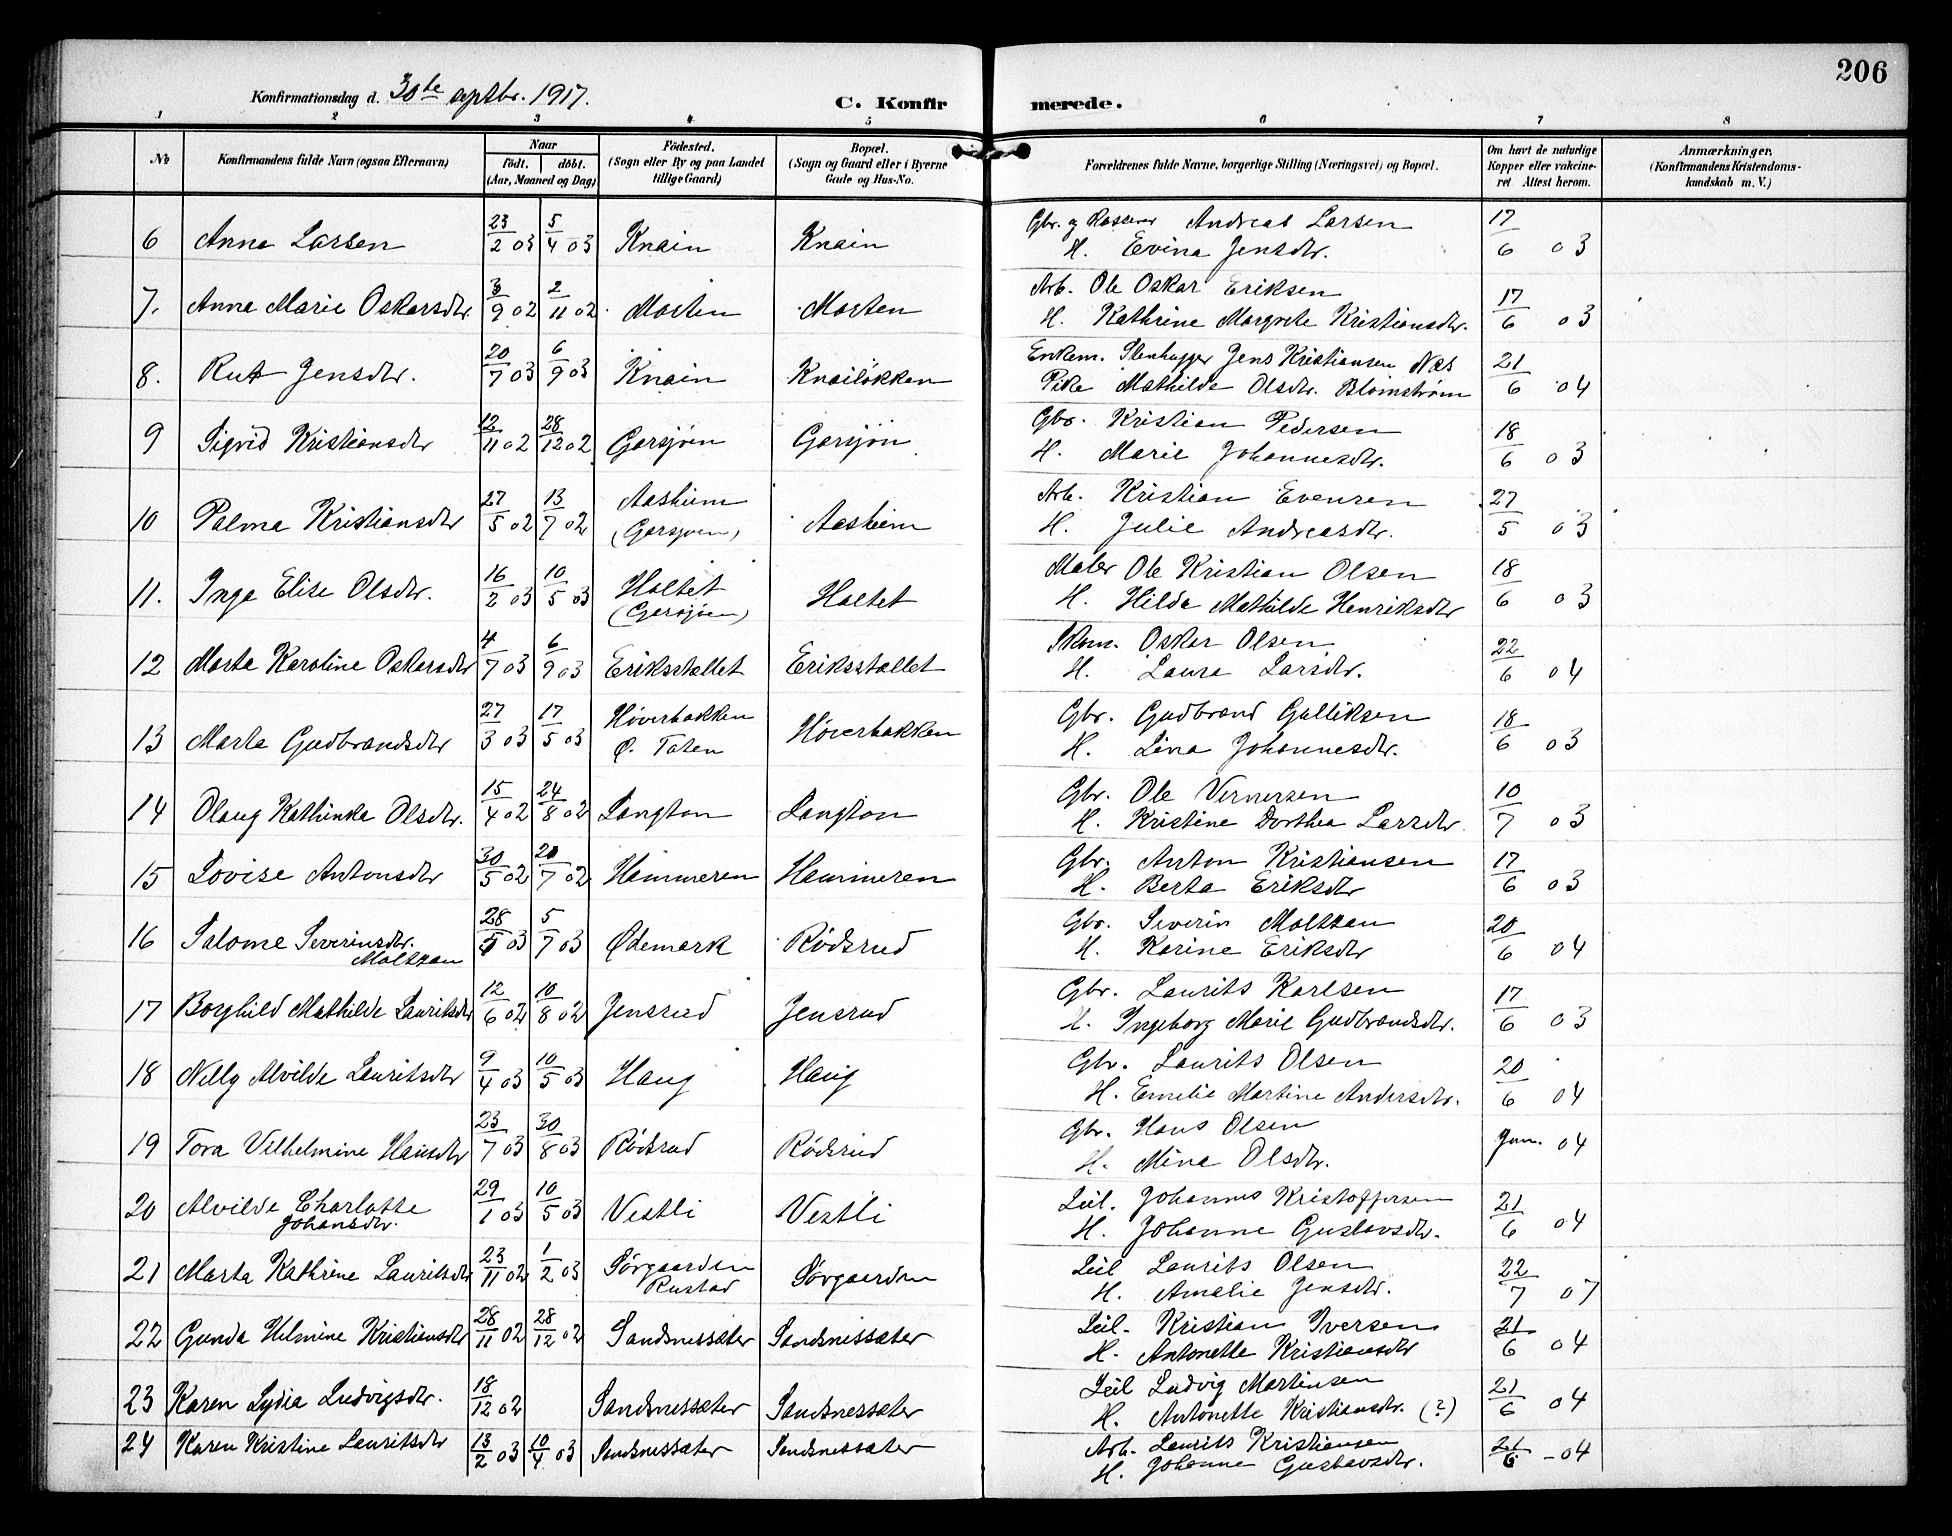 206
Konfirmationsdag d. 30te septbr. 1917.
C. Konfirmerede.
1 2 3 4 5 6 7 8
No
Konfirmandens fulde Navn (ogsaa Efternavn)
Naar
født. døbt.
(Aar, Maaned og Dag)
Fødested.
(Sogn eller By og paa Landet
tillige Gaard)
Bopæl.
(Sogn og Gaard eller i Byerne
Gade og Hus-No.
Forældrenes fulde Navne, borgerlige Stilling (Næringsvei) og Bopæl.
Om havt de naturlige
Kopper eller vakcine-
ret Attest herom.
Anmærkninger,
(Konfirmandens Kristendoms-
kundskab m. V.)
6 Anna Larsen 23/2 03 5/4 03 Knain Knain Gbr. og Andreas Larsen 17/6 03
H. Evina Jensdtr.
7. Anna Marie Oskarsdtr. 3/9 02 2/11 02 Morten Morten Arb. Ole Oskar Eriksen 17/6 03
H. Kathrine Margrete Kristiansdtr.
8. Rut Jensdtr. 20/7 03 6/9 03 Knain Knailøkken Enkem. Stenhugger Jens Kristiansen Næs 21/6 04
Pike Mathilde Olsdtr. Blomstrøm
9 Sigrid Kristiansdtr 12/11 02 28/12 02 Garsjøen Garsjøn Gbr. Kristian Pedersen 18/6 03
H. Marie Johannesdtr.
10 Palma Kristiansdtr 27/5 02 13/7 02 Aasheim (Garsjøen) Aasheim Arb. Kristian Evensen 27/5 03
H. Julie Andreasdtr.
11. Inga Elise Olsdtr. 16/2 03 10/5 03 Holtet (Garsjøen) Holtet Maler Ole Kristian Olsen 18/6 03
H. Hilda Mathilde Henriksdtr
12 Marta Karoline Oskarsdtr 4/7 03 6/9 03 Eriksstallet Eriksstallet Skom. Oskar Olsen 22/6 04
H. Laura Larsdtr.
13 Marta Gudbrandsdtr 27/3 03 17/5 03 Høverbakken Ø. Toten Høverbakken Gbr. Gudbrand Gulliksen 18/6 03
H. Lina Johannesdtr.
14 Olaug Kathinka Olsdtr. 15/4 02 24/8 02 Langton Langton Gbr. Ole Vernersen 10/7 03
H. Kristine Dorthea Larsdtr.
15 Lovise Antonsdtr 30/5 02 20/7 02 Hammeren Hammeren Gbr. Anton Kristiansen 17/6 03
H. Berta Eriksdtr
16 Salome Severinsdtr. Moltzau 28/5 03 5/7 03 Ødemark Rødsrud Gbr. Severin Moltzau 20/6 04
H. Karine Eriksdtr
17 Borghild Mathilde Lauritsdtr 12/6 02 10/8 02 Jensrud Jensrud Gbr. Laurits Karlsen 17/6 03
H. Ingeborg Marie Gudbrandsdtr.
18 Nelly Alvilde Lauritsdtr 9/4 03 10/5 03 Haug Haug Gbr. Laurits Olsen 20/6 04
H. Emelie Martine Andersdtr.
19 Tora Vilhelmine Hansdtr 23/7 03 30/8 03 Rødsrud Rødsrud Gbr. Hans Olsen Jun. 04
H. Mina Olsdtr.
20 Alvilde Charlotte Johansdtr. 29/1 03 10/5 03 Vestli Vestli Leil. Johannes Kristoffersen 21/6 04
H. Johanne Gustavsdtr.
21 Marta Kathrine Lauritsdtr 23/11 02 1/2 03 Sørgaarden Rustad Sørgaarden Leil Laurits Olsen 22/7 07
H. Amalie Jensdtr.
22 Gunda Hilmine Kristiansdtr 28/11 02 28/12 02 Sandnessæter Sandnessæter Leil. Kristian Iversen 21/6 04
H. Antonette Kristiansdtr
23 Karen Lydia Ludvigsdtr. 18/12 02 Sandnessæter Sandnessæter Leil Ludvig Martinsen 21/6 04
H. Antonette Kristiansdtr. (?)
24 Karen Kristine Lauritsdtr 13/2 03 10/4 03 Sandnessæter Sandnessæter Arb. Laurits Kristiansen 21/6 - 04
H. Johanne Gustavsdtr.